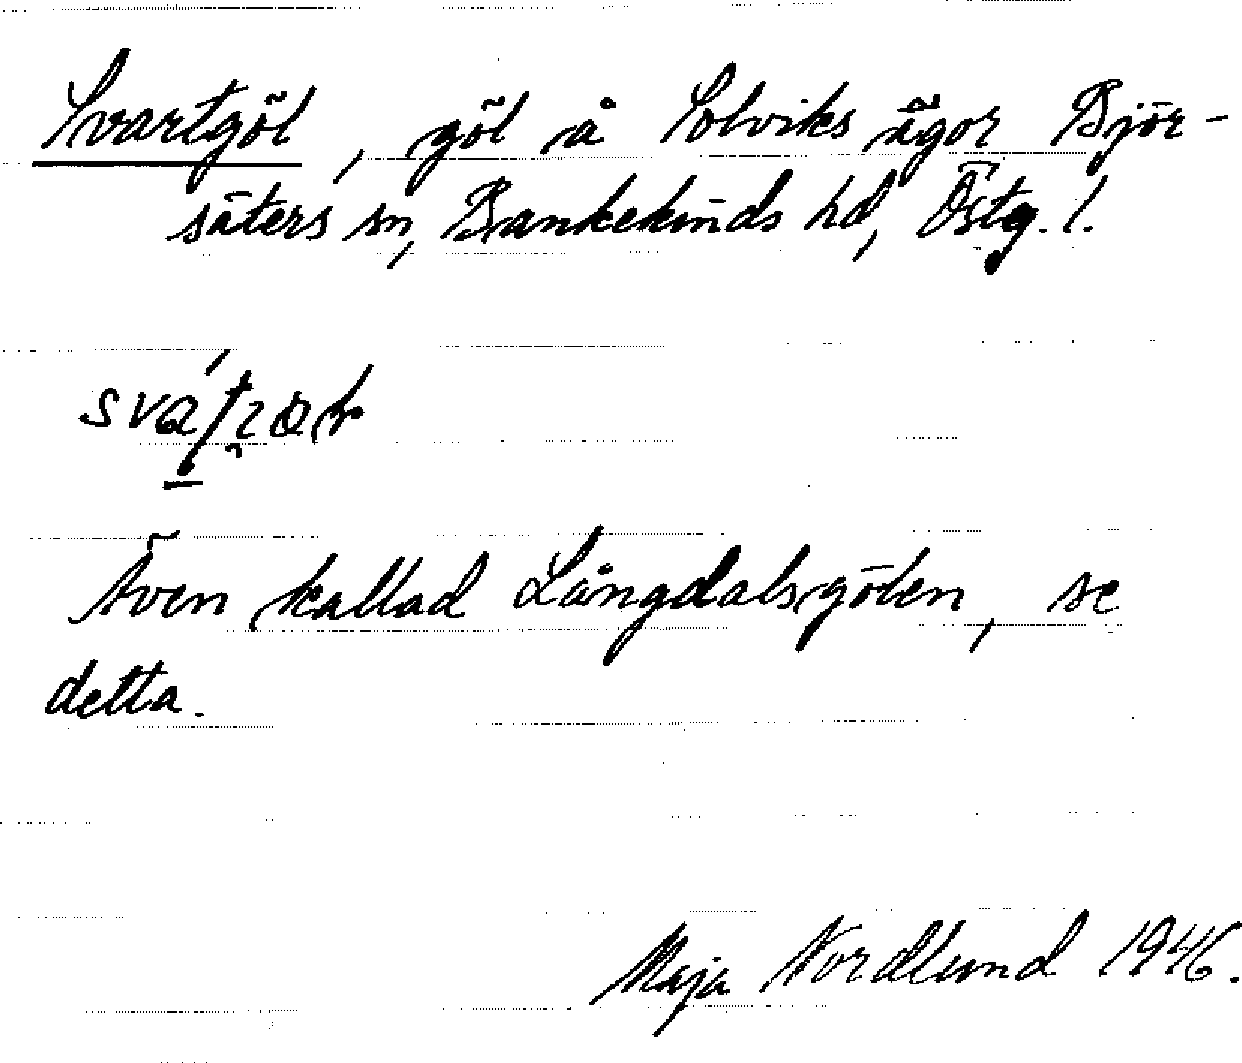 Svartgöl, göl å Solviks ägor Björ-
säters sn, Bankekinds hd, Östg. l.
Även kallad Långdalsgölen, se
detta.
Maja Nordlund 1946.